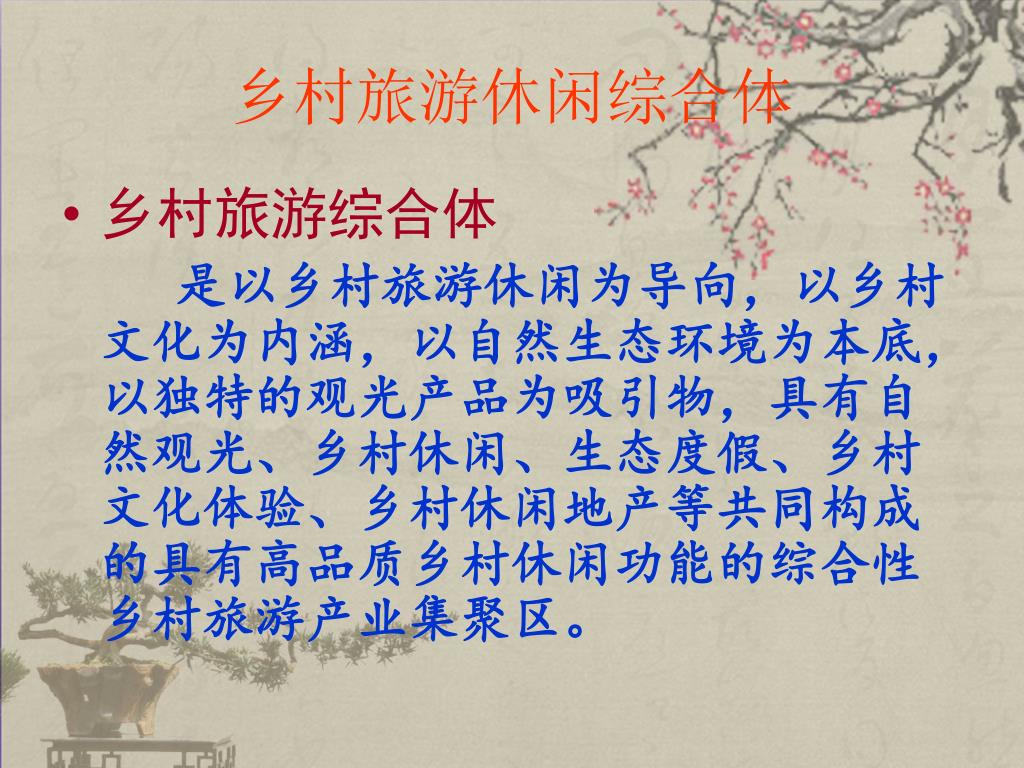 乡村旅游休闲综合体
• 乡村旅游综合体
是以乡村旅游休闲为导向，以乡村
文化为内涵，以自然生态环境为本底，
以独特的观光产品为吸引物，具有自
然观光、乡村休闲、生态度假、乡村
文化体验、乡村休闲地产等共同构成
的具有高品质乡村休闲功能的综合性
乡村旅游产业集聚区。